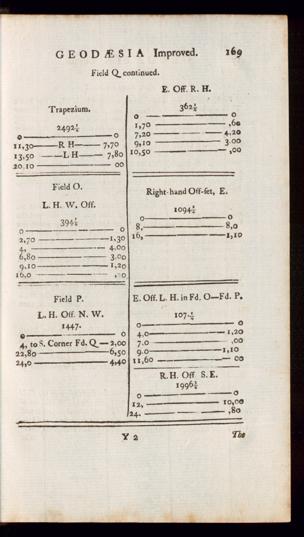 GEODÆSIA Improved. 169
Field Q continued.
Trapezium.
2492½
0 ——— 0
11,30 — R H — 7,70
13,50 — L H — 7,80
20.10 ——— 00
Field O.
L. H. W. Off.
394½
0 ——— 0
2,70 ——— 1,30
4, ——— 4.00
6,80 ——— 3.00
9,10 ——— 1,20
16,0 ———
Field P.
L. H. Off N. W.
1447.
0 ——— 0
4, to S. Corner Fd. Q — 2,00
22,80 ——— 6,50
24,0 ——— 4,40
E. Off. R. H.
362½
0 ——— 0
1,70 ——— ,60
7,20 ——— 4.20
9,10 ——— 3.00
10,50 ——— ,00
Right-hand Off-set, E.
1094½
0 ——— 0
8, ——— 8,0
16, ——— 1,10
E. Off. L. H. in Fd. O—Fd. P.
0 ——— 0
4.0 ——— 1,20
7.0 ——— ,00
9.0 ——— 1,10
11,60 ——— 00
R. H. Off S. E.
1996½
0 ——— 0
12, ——— 10,00
24. ——— ,80
Y 2 The